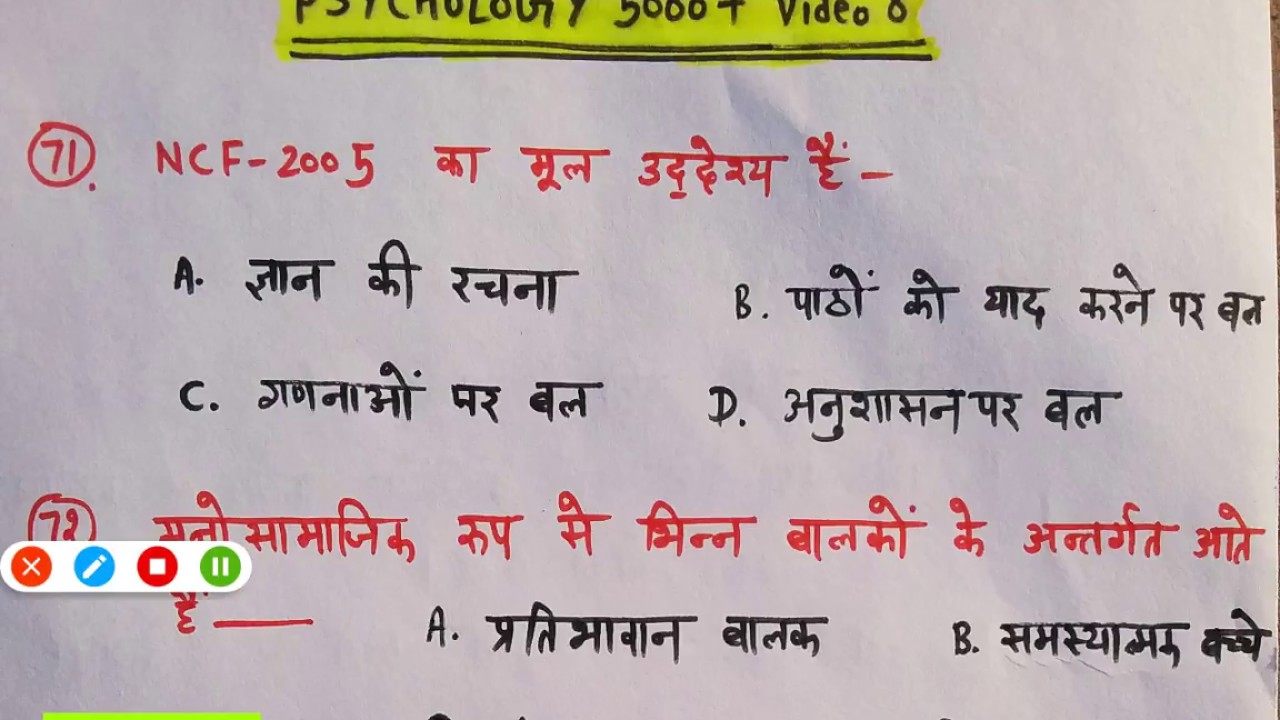 PSYCHOLOGY 5000+ Video 8
71. NCF-2005 का मूल उद्देश्य हैं-
A. ज्ञान की रचना
B. पाठों को याद करने पर बल
C. गणनाओं पर बल
D. अनुशासन पर बल
72 मनोसामाजिक रूप से भिन्न बालकों के अन्तर्गत आते
हैं ____ A. प्रतिभावान बालक B. समस्यात्मक बच्चे